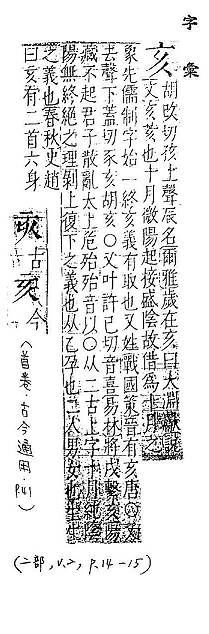 字彙
亥
胡改切孩上聲辰名爾雅歲在亥曰大淵獻說
文亥荄也十月微陽起接盛陰故借爲
象先儒制字始一終亥義有取也又姓戰國策晉有亥唐
去聲下蓋切豕亥胡亥○又叶許已切音喜易林將戌繫亥陽
藏不起君子散亂太上危殆殆音以○从二古上字十月純陰
陽無終絕之理剝上復下之義也从乙孕也二人男女也生生
之義也春秋史趙
曰亥有二首六身
亥古
亥今
(首卷·古今通用·p.41)
(二部, v.2, p.14-15)